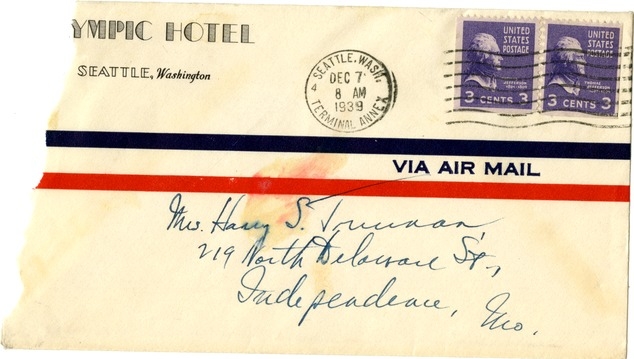 YMPIC HOTEL
SEATTLE, Washington
SEATTLE, WASH.
4
DEC 7
8 AM
1939
TERMINAL ANNEX
UNITED
STATES
POSTAGE
3 CENTS 3
UNITED
STATES
POSTAGE
THOMAS
JEFFERSON
3 CENTS 3
VIA AIR MAIL
Mrs. Harry S. Truman
219 North Delaware St.,
Independence, Mo.